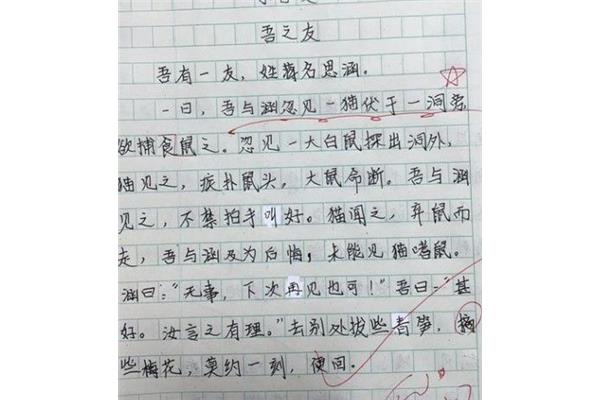 吾之友
吾有一友，姓蒋名思涵。
一日，吾与涵忽见一猫伏于一洞旁
欲捕食鼠之。忽见一大白鼠探出洞外，
猫见之，疾扑鼠头，大鼠命断。吾与涵
见之，不禁拍手叫好。猫闻之，弃鼠而
走，吾与涵及为后悔，未能见猫嗜鼠。
涵曰："无事，下次再见也可！"吾曰："甚
好。汝言之有理。"去别处拔些春笋，摘
些梅花，莫约一刻，便回。